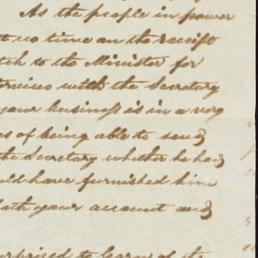 As the people in power
no time on the receipt
tch to the Minister for
with the Secretary
your business is in a very
es of being able to send
the Secretary whether he had
uld have furnished him
both your account and
surprised to learn of the